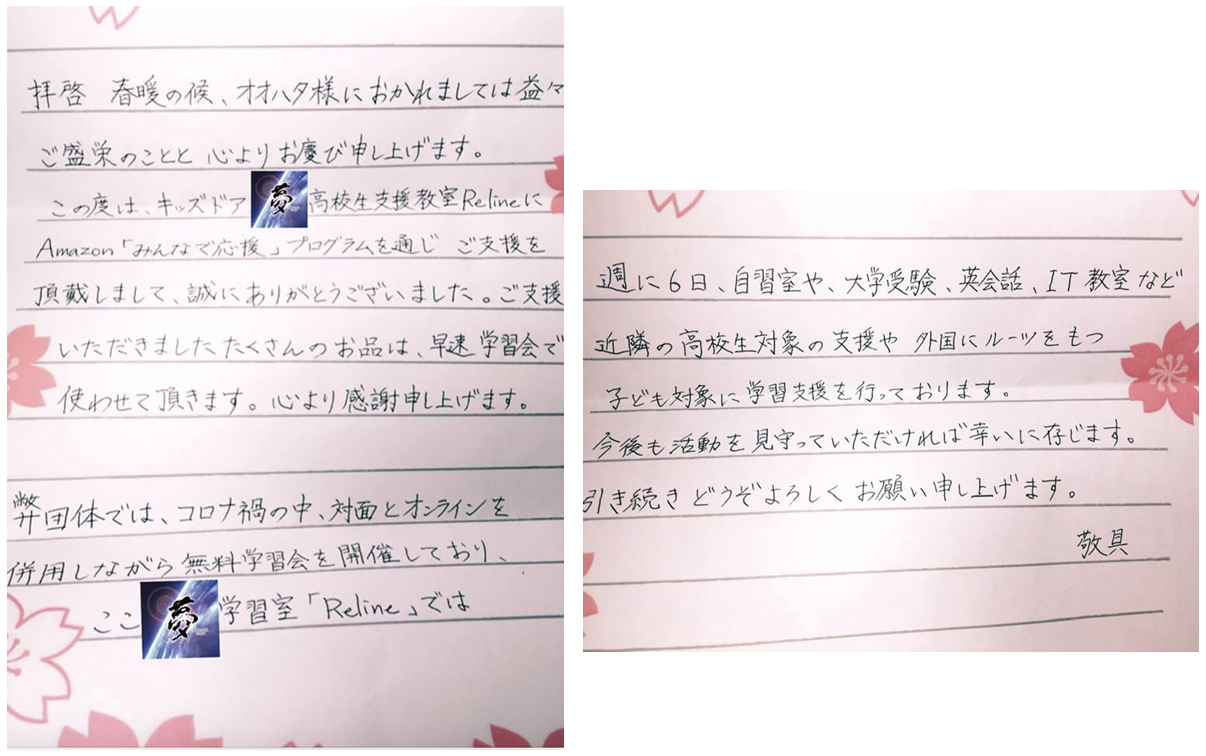 拝啓 春暖の候、オオハタ様におかれましては益々
ご盛栄のことと 心よりお慶び申し上げます。
この度は、キッズドア 夢 高校生支援教室Relineに
Amazon「みんなで応援」プログラムを通じ ご支援を
頂戴しまして、誠にありがとうございました。ご支援
いただきましたたくさんのお品は、早速学習会で
使わせて頂きます。心より感謝申し上げます。
弊団体では、コロナ禍の中、対面とオンラインを
併用しながら無料学習会を開催しており、
ここ 夢 学習室「Reline」では
週に6日、自習室や、大学受験、英会話、IT教室など
近隣の高校生対象の支援や 外国にルーツをもつ
子ども対象に学習支援を行っております。
今後も活動を見守っていただければ幸いに存じます。
引き続きどうぞよろしくお願い申し上げます。
敬具